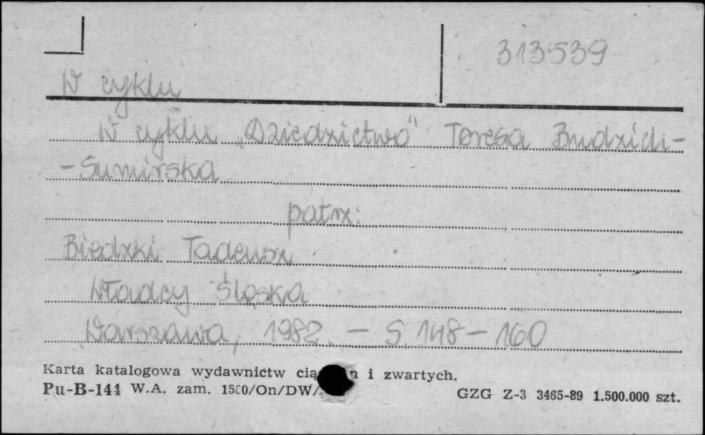 313539
W cyklu
W cyklu „Dziedzictwo" Teresa
-Sumirska
patrz:
Biedzki Tadeusz
Władcy Śląska
Warszawa, 1982. – S. 148–160
Karta katalogowa wydawnictw i zwartych.
Pu-B-144 W.A. zam. 1500/On/DW/
GZG Z-3 3465-89 1.500.000 szt.